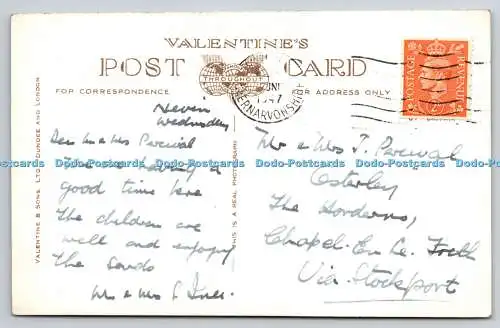 VALENTINE'S
POST CARD
THROUGHOUT
FOR CORRESPONDENCE
FOR ADDRESS ONLY
1947
CAERNARVONSHIRE
POSTAGE
REVENUE
VALENTINE & SONS, LTD., DUNDEE AND LONDON
THIS IS A REAL PHOTOGRAPH
Nevin
Wednesday
Dear Mr & Mrs Percival
We are having a
good time here
The children are
well and enjoying
the sands
Mr & Mrs S
Mr & Mrs J. Percival
Osterley
The Hordens,
Chapel-En-Le-Frith
Via Stockport
Dodo-Postcards Dodo-Postcards Dodo-Postcards Dodo-Postcards Dodo-Postcards Dodo-Postcards